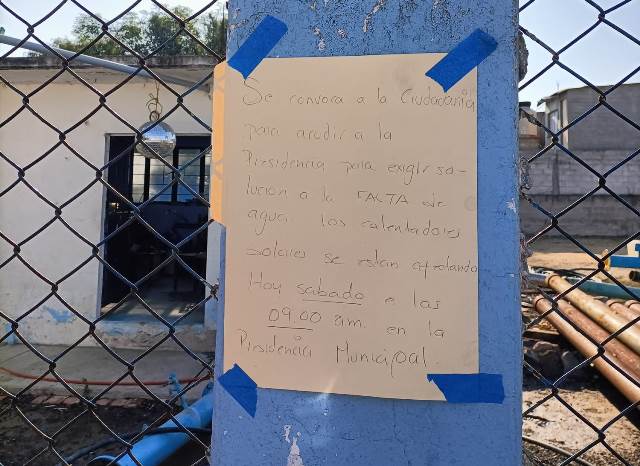 Se convoca a la Ciudadanía
para acudir a la
Presidencia para exigir so-
lución a la FALTA de
agua. los calentadores
solares se estan afectando
Hoy sabado a las
09.00 am. en la
Presidencia Municipal.